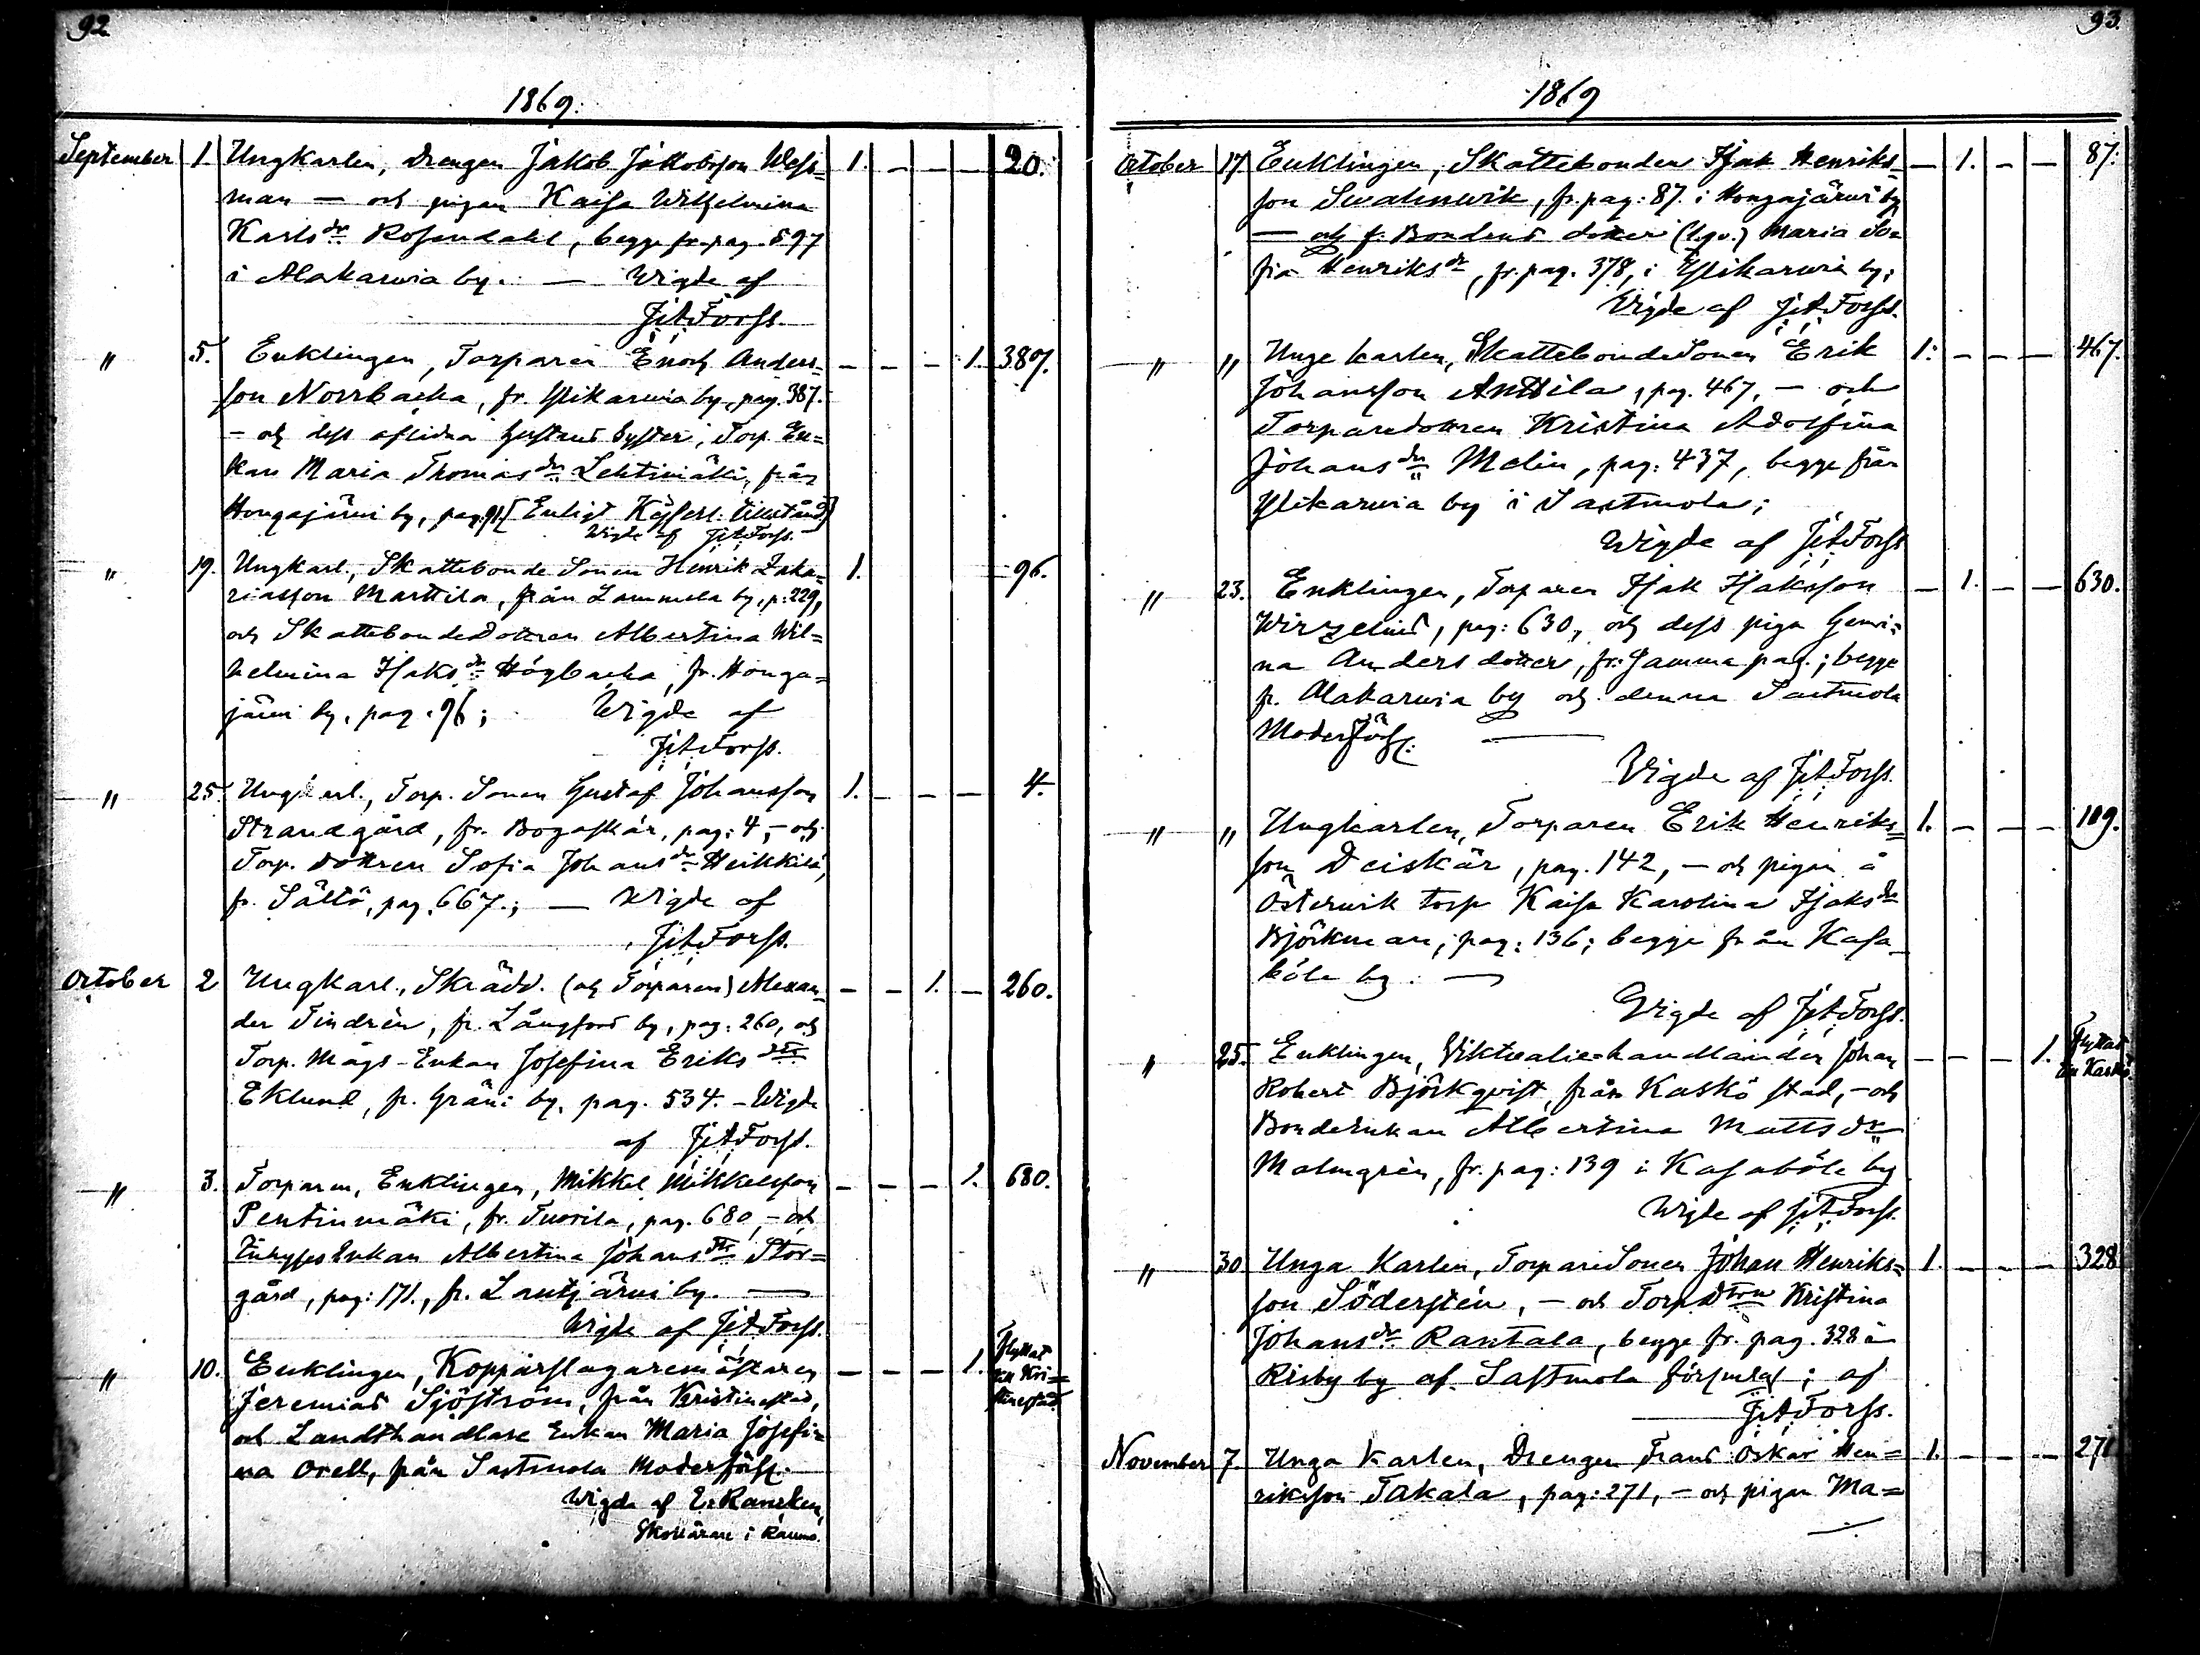 92
1869.
September 1. Ungkarlen, Drengen Jakob Jakobsson Wess= 1. — — — 20.
man — och pigan Kaisa Wilhelmina
Karlsdr Rosendahl, begge fr. pag. 597
i Alakarvia by. — Wigde af
J.A. Forss.
" 5. Enklingen, Torparen Enoch Anders= — — — 1. 387.
son Norrbacka, fr. Ylikarvia by, pag. 387.
— och dess aflidna hustrus syster, Torp. En=
kan Maria Thomasdr Lehtimäki, från
Hongajärvi by, pag. 91 [Enligt Kejserl. tillstånd]
Wigde af J.A. Forss.
" 19. Ungkarl., Skattebonde Sonen Henrik Zaka= 1. 96.
riasson Marttila, från Lammela by, p. 229,
och SkattebondeDottren Albertina Wil=
helmina Isaksdr Högbacka, fr. Honga=
järvi by, pag. 96; Wigde af
J.A. Forss.
" 25. Ungkarl., Torp. Sonen Gustaf Johansson 1. — — — 4.
Strandgård, fr. Bogaskär, pag: 4, — och
Torp. dottren Sofia Johansdr Heikkilä,
fr. Sältö, pag. 667.; — Wigde af
J.A. Forss.
October 2 Ungkarl., Skrädd. (och Torparen) Alexan= — — 1. — 260.
der Tindrén, fr. Långfors by, pag: 260, och
Torp. Mågs-Enkan Josefina Eriksdtr
Eklund, fr. Gräni by, pag. 534. — Wigde
af J.A. Forss.
" 3. Torparen, Enklingen, Mikkel Mikkelsson — — — 1. 680.
Pentinmäki, fr. Tuorila, pag. 680, — och
Enkan Albertina Johansdtr Stor=
gård, pag: 171., fr. Lautjärvi by. —
Wigde af J.A. Forss.
" 10. Enklingen, Kopparslagaremästaren — — — 1. Flyttat
Jeremias Sjöström, från Kristinestad, till Kri=
stinestad.
och Landthandlare Enkan Maria Josefi=
na Orell, från Sastmola Moderförs.
Wigde af E. Rancken,
Skollärare i Raumo.
93.
1869
October 17. Enklingen, Skattebonden Isak Henriks= — 1. — — 87.
son Swahnwik, fr. pag: 87. i Hongajärvi by
— och f. Bondens dotter (Maria So=
fia Henriksdr, fr. pag. 378, i Ylikarvia by;
Wigde af J.A. Forss.
" " Unge karlen, SkattebondeSonen Erik 1. — — — 467.
Johansson Anttila, pag. 467, — och
Torparedottren Kristina Adolfina
Johansdr Melin, pag: 437, begge från
Ylikarvia by i Sastmola;
Wigde af J.A. Forss
" 23. Enklingen, Torparen Isak Isaksson — 1. — — 630.
Wirzelius, pag: 630, och dess piga Gemi=
na Andersdotter, fr. samma pag.; begge
fr. Alakarvia by och denna Sastmola
Moderförs. —
Wigde af J.A. Forss.
" " Ungkarlen, Torparen Erik Henriks= 1. — — — 109.
son Deiskär, pag. 142, — och pigan å
Östervik torp Kaisa Karolina Isaksdr
Björkman, pag: 136; begge från Kasa=
böle by. —
Wigde af J.A. Forss.
" 25. Enklingen, Viktualiehandlanden Johan — — — 1. Flyttat
till Kaskö.
Robert Björkqvist, från Kaskö stad, — och
BondeEnkan Albertina Mattsdr
Malmgrén, fr. pag: 139 i Kasaböle by
Wigde af J.A. Forss.
" 30. Unga Karlen, TorpareSonen Johan Henriks= 1. — — — 328
son Söderstén, — och Torp.dtren Kristina
Johansdr Rantala, begge fr. pag. 328 å
Risby by af Sastmola församl; af
J.A. Forss.
November 7. Unga Karlen, Drengen Frans Oskar Hen= 1. — — — 271
riksson Takala, pag: 271, — och pigan Ma=